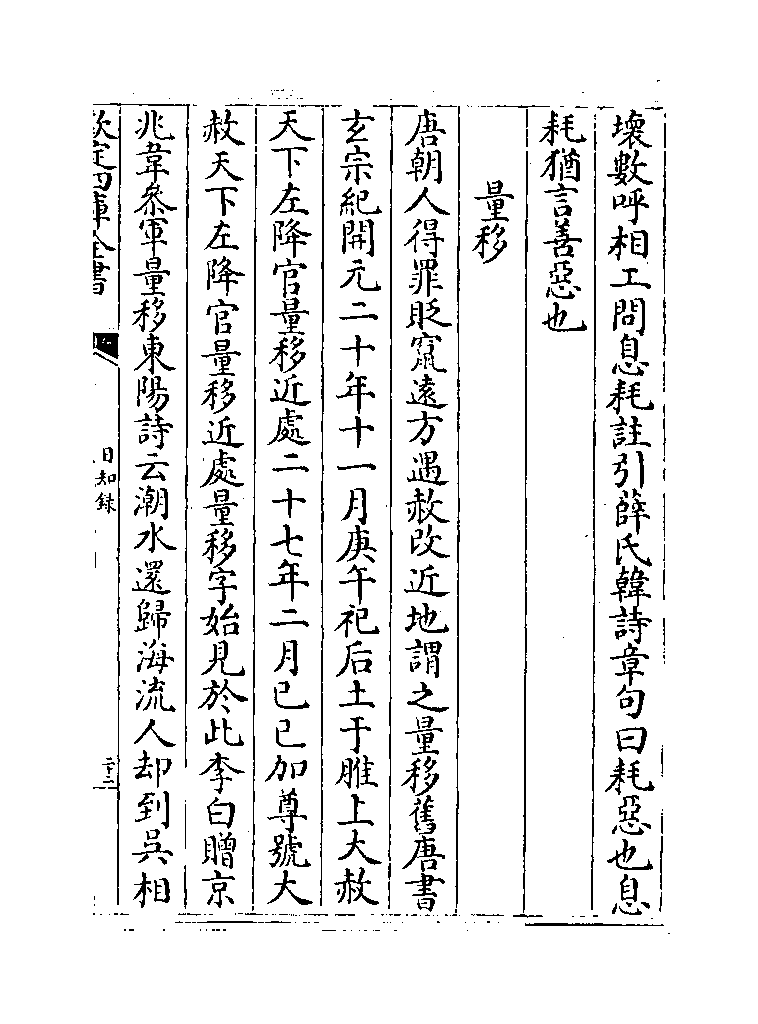 壞數呼相工問息耗註引薛氏韓詩章句曰耗惡也息
耗猶言善惡也
量移
唐朝人得罪貶竄遠方遇赦改近地謂之量移舊唐書
玄宗紀開元二十年十一月庚午祀后土于脽上大赦
天下左降官量移近處二十七年二月已已加尊號大
赦天下左降官量移近處量移字始見於此李白贈京
兆韋叅軍量移東陽詩云潮水還歸海流人却到吳相
欽定四庫全書
日知錄
二十二